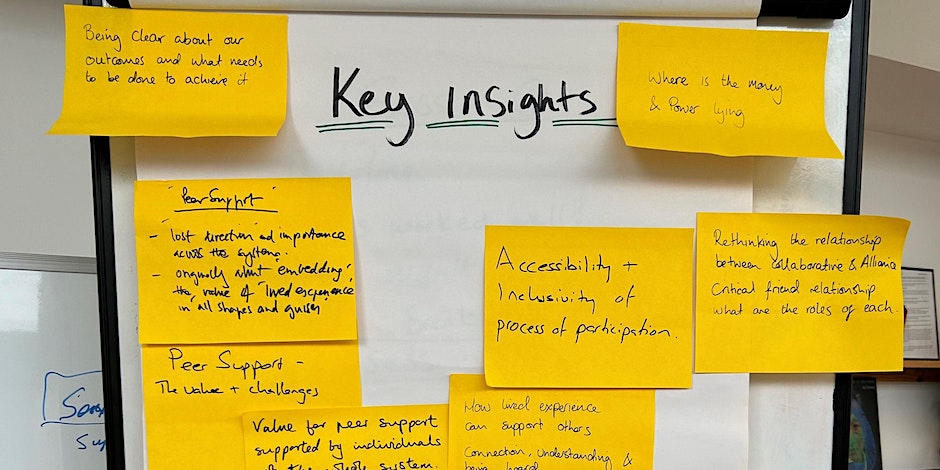 Being clear about our
outcomes and what needs
to be done to achieve it
Key Insights
Where is the money
& Power lying
"Peer Support"
- lost direction and importance
across the system.
- originally about embedding
the value of "lived experience
in all shapes and guises
Accessibility +
Inclusivity of
process of participation.
Rethinking the relationship
between collaborative & Alliance
Critical friend relationship
what are the roles of each.
Peer Support -
The value + challenges
Value for peer support
supported by individuals
the whole system.
How lived experience
can support others
Connection, understanding &
being heard